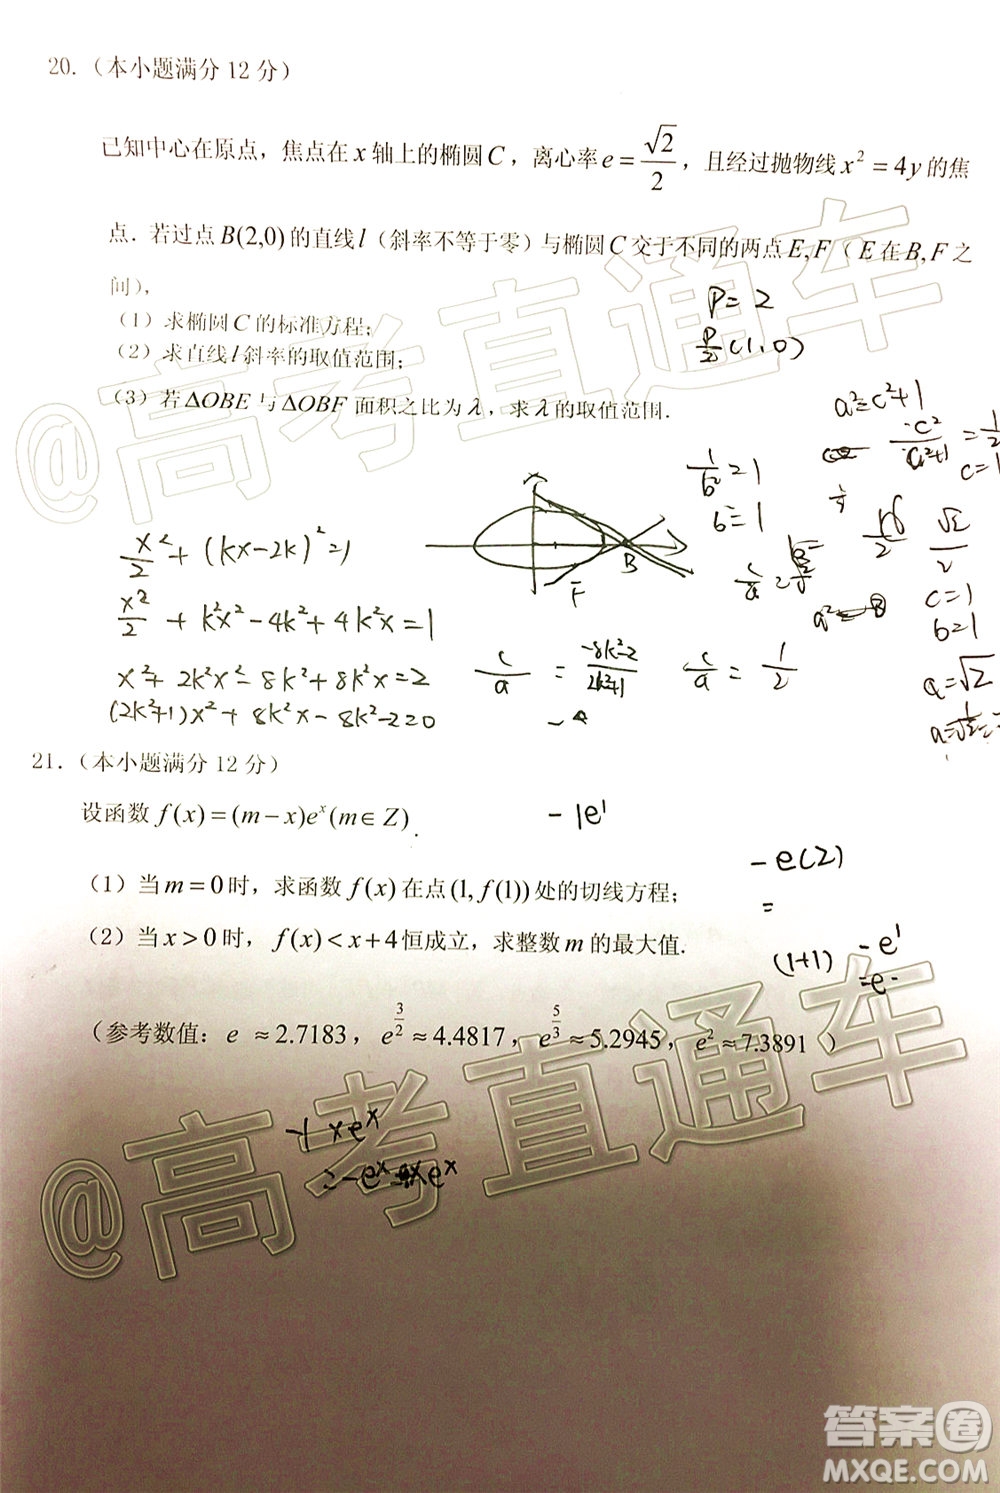 20.（本小题满分 12 分）
已知中心在原点，焦点在 x 轴上的椭圆 C，离心率 e = √2/2，且经过抛物线 x² = 4y 的焦
点．若过点 B(2,0) 的直线 l（斜率不等于零）与椭圆 C 交于不同的两点 E,F（E 在 B,F 之
间），
P = 2
（1）求椭圆 C 的标准方程；
P/2 (1,0)
（2）求直线 l 斜率的取值范围；
（3）若 ΔOBE 与 ΔOBF 面积之比为 λ，求 λ 的取值范围．
a² = c²+1
c²/(c²+1) = 1/2
c = 1
1/b² = 1
b = 1
√2/2
c = 1
b = 1
a = √2
B
F
x²/2 + (kx-2k)² = 1
x²/2 + k²x² - 4k² + 4k²x = 1
x² + 2k²x² - 8k² + 8k²x = 2
(2k²+1)x² + 8k²x - 8k² - 2 = 0
c/a = (-8k²-2)/(2k²+1)
c/a = 1/2
21.（本小题满分 12 分）
设函数 f(x) = (m - x)eˣ (m ∈ Z).
- 1e¹
- e(2)
=
（1）当 m = 0 时，求函数 f(x) 在点 (1, f(1)) 处的切线方程；
（2）当 x > 0 时，f(x) < x + 4 恒成立，求整数 m 的最大值.
(1+1) - e¹
= e -
（参考数值：e ≈ 2.7183，e^(3/2) ≈ 4.4817，e^(5/3) ≈ 5.2945，e² ≈ 7.3891）
xeˣ
@高考直通车
@高考直通车
答案圈
MXQE.COM